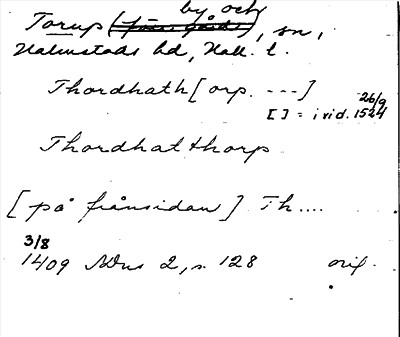 by och
Torup (förr gård), sn,
Halmstads hd, Hall. l.
Thordhath[orp. ---] 26/9
[ ] = i vid. 1524
Thordhatthorp
[på frånsidan] Th....
3/8
1409 NDns 2, s. 128 orig.